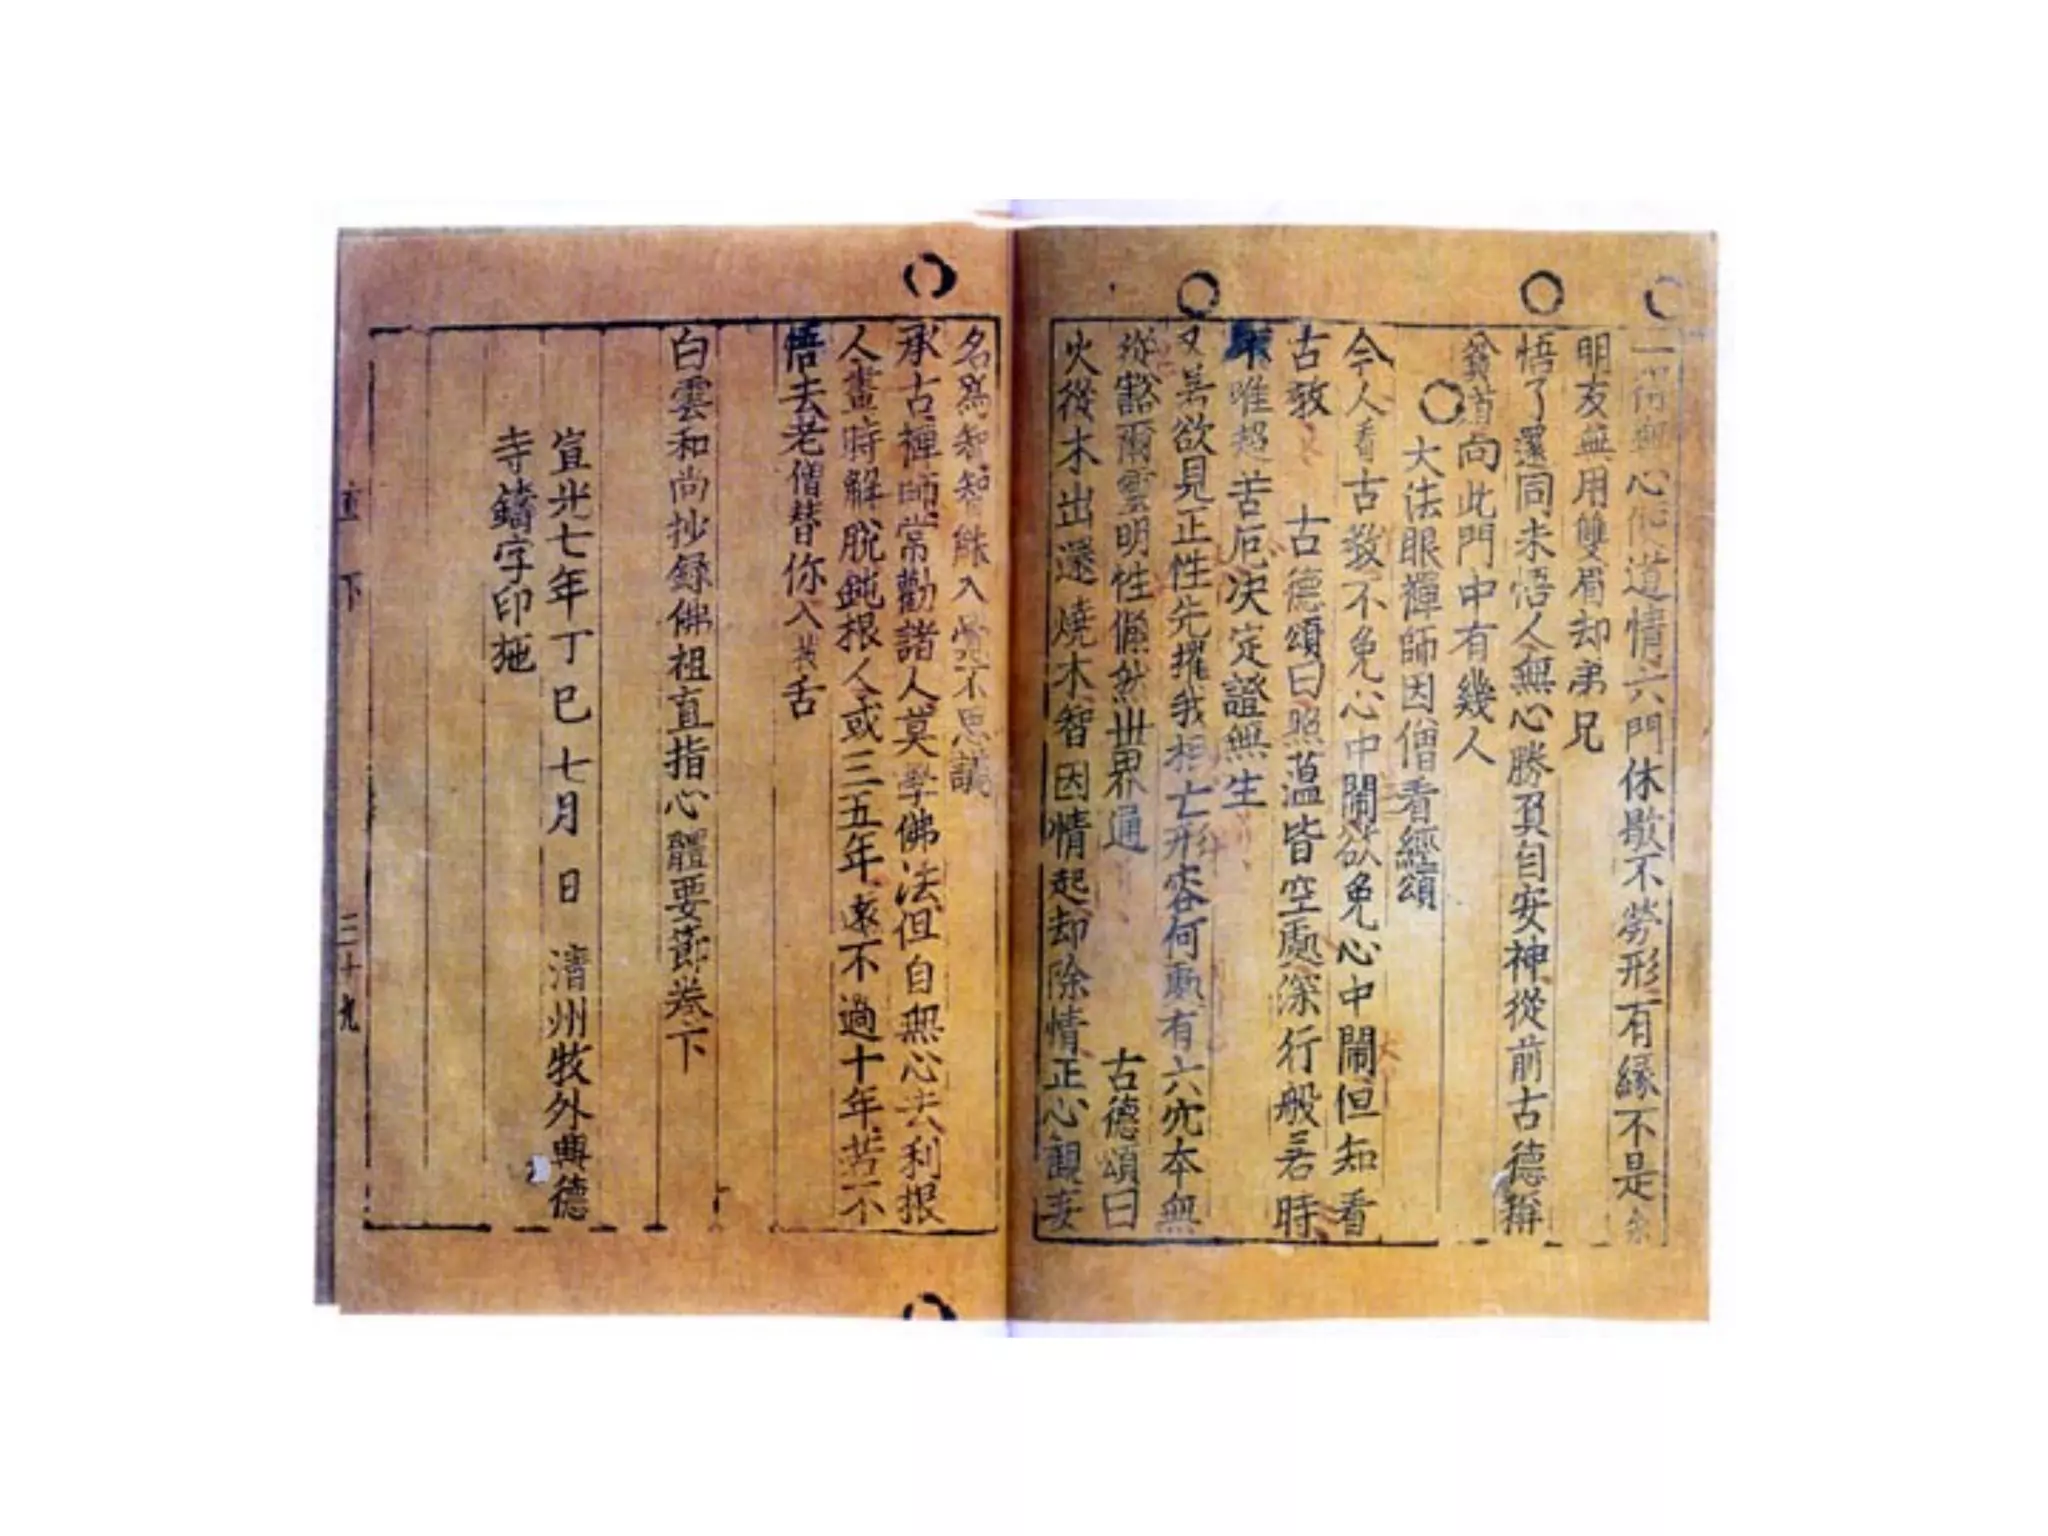 心但道情六門休歇不勞形有緣不是余
朋友無用雙眉却弟兄
悟了還同未悟人無心勝負自安神從前古德稱
貧道向此門中有幾人
大法眼禪師因僧看經頌
今人看古敎不免心中鬧欲免心中鬧但知看
古敎 古德頌曰照蘊皆空處深行般若時
唯超苦厄決定證無生
又若欲見正性先擢我相亡形容何處有六穴本無
從豁爾靈明性翛然世界通 古德頌曰
火從木出還燒木智因情起却除情正心觀妄
名爲智智能入不思議
承古禪師常勸諸人莫學佛法但自無心去利根
人晝時解脫鈍根人或三五年遠不過十年若不
悟去老僧替你入拔舌
白雲和尙抄錄佛祖直指心體要節卷下
宣光七年丁巳七月 日 淸州牧外興德
寺鑄字印施
直 下 三十九